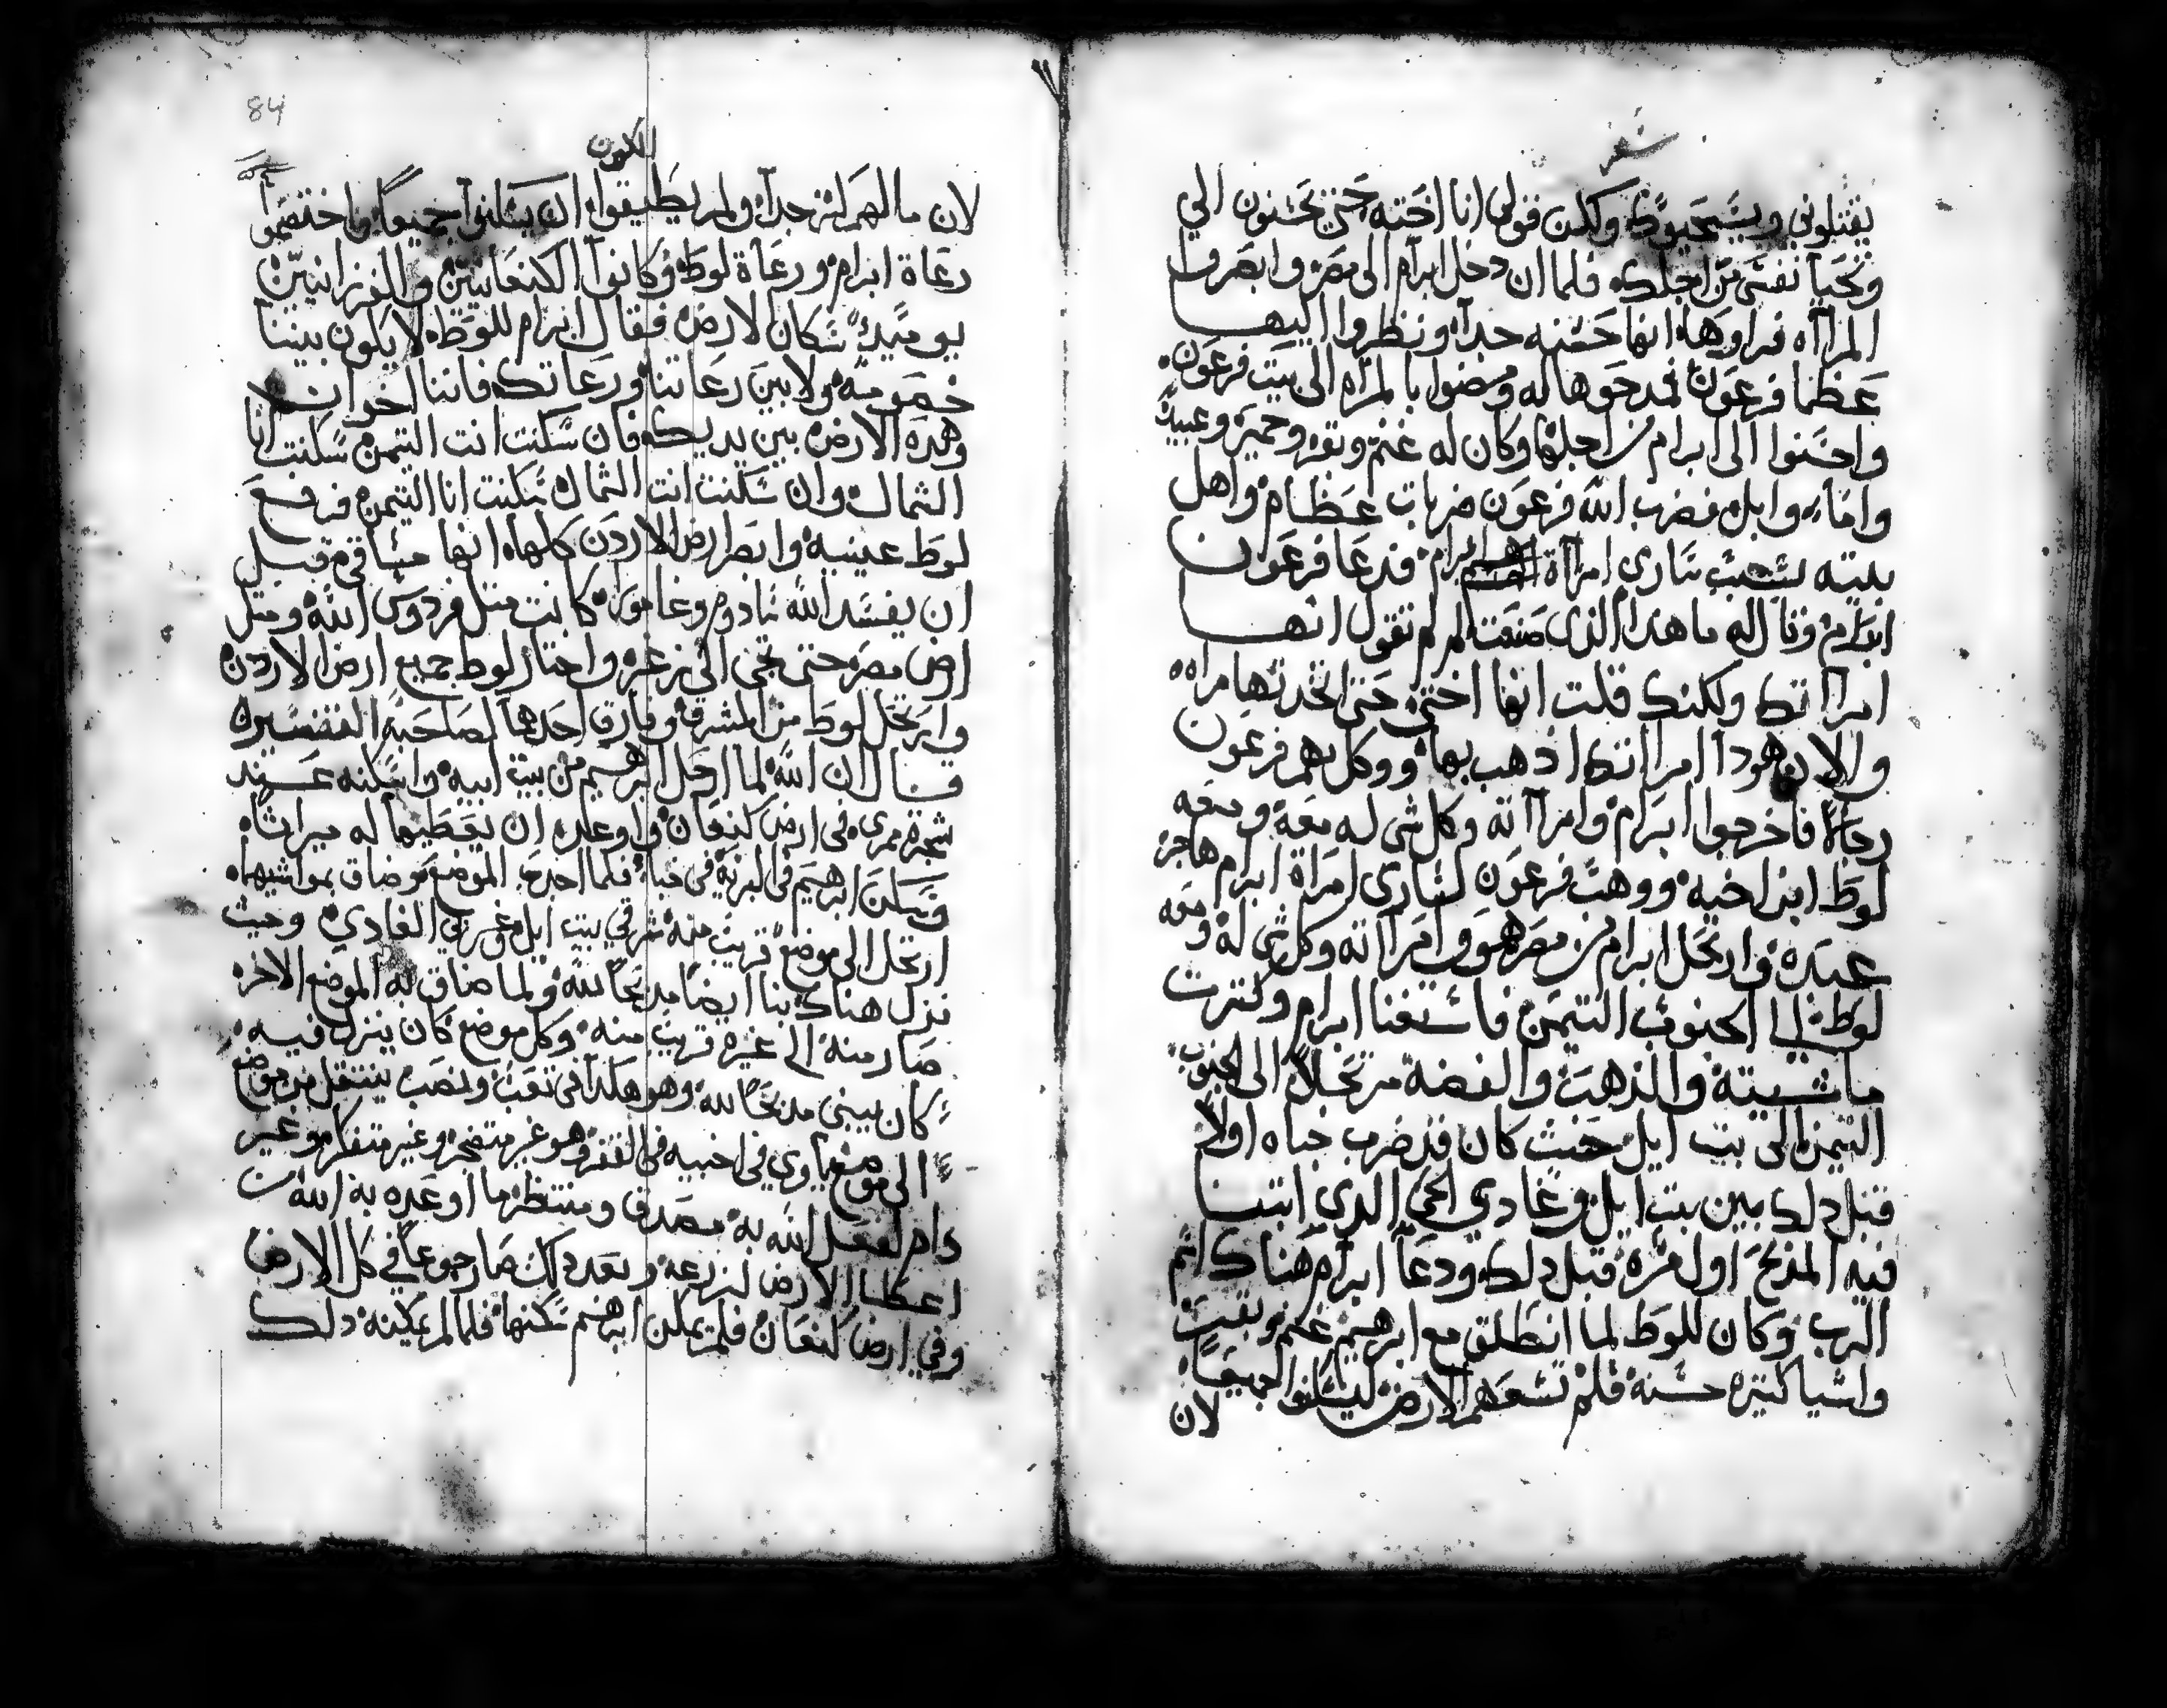 سفر
يقتلوني ويستحيوكي ولكن قولي انا اخته حتي يحسنون الي
وتحيا نفسي من اجلك فلما ان دخل ابرام الى مصر وابصروا
المرااه فراوها انها حسنه جدا ونظروا اليها
عظما فرعون فمدحوها له ومضوا بالمراه الى بيت فرعون
واحسنوا الى ابرام من اجلها وكان له غنم وبقر وحمير وعبيد
واماء وابل فضرب الله فرعون ضربات عظام واهل
بيته بسبب ساري امراة ابرام فدعا فرعون
ابرام وقال له ما هدا الذي صنعت لم لم تقول انها
امرااتك ولكنك قلت انها اختي حتى اتخدتها مراه
والان هودا امرااتك اذهب بها ووكل بهم فرعون
رجالا فاخرجوا ابرام وامرااته وكل شي له معه ومعه
لوط ابن اخيه ووهب فرعون لساري امراة ابرام هاجر
عبده وارتحل ابرام من مصر هو وامرااته وكل شي له ومعه
لوط الى الجنوب التيمن فاستغنا ابرام وكترت
ماشيته والذهب والفضه مرتحلا الى الجنوب
التيمن الى بيت ايل حيث كان قد ضرب خباه اولا
قبل دلك بين بيت ايل وغادي الدي ابتنا
فيه المذبح اول مره قبل دلك ودعا ابرام هناك اسم
الرب وكان للوط لما انطلق مع ابرهيم غنم وبقر
واشيا كتيره حسنه فلم تسعهم الارض ليسكنوا جميعا
لان
84
الكون
لان ما لهم كتر جدا ولم يطيقوا ان يسكنوا جميعا واختصموا
رعاة ابرام ورعاة لوط وكانوا الكنعانيين والفرزانيين
يوميد سكان الارض فقال ابرام للوط لا يكون بيننا
خصومه ولا بين رعاتنا ورعاتك فاننا اخوان
وهده الارض بين يديك فان سكنت انت التيمن سكنت انا
الشمال وان سكنت انت الشمال سكنت انا التيمن فرفع
لوط عينيه وابصر ارض الاردن كلها انها قبل
ان يفسد الله سادوم وغامورا كانت متل فردوس الله ومتل
ارض مصر حتى تجي الي زغر واختار لوط جميع ارض الاردن
وارتحل لوط من المشرق وفارق احدهما لصاحبه التفسير
قال ان الله لما ارحل ابرهيم من بيت ابيه واسكنه عند
شجرة ممرى في ارض كنعان واوعده ان يعطيها له ميراثا
وسكن ابرهيم في البريه في خباه فلما الموضع وضاق بمواشيها
ارتحل الى موضع قريب منه شرقي بيت ايل وغربي الغادي وحيث
نزل هناك بنا ايضا مدبحا لله ولما ضاق به الموضع الاخر
صار منه الى غيره قريب منه وكل موضع كان ينزل فيه
كان يبني مدبحا لله وهو هكذا في تعب ونصب ينتقل من موضع
الى موضع ياوي في اخبيه في القفر وهو غير متضجر وغير متفكر وغير
دام لفعل الله به مصدق ومنتظر ما اوعده به الله
اعطا الارض لزرعه وبعد دلك صار جوعا في كل الارض
وفي ارض كنعان فلم يمكن ابرهيم سكنها فلما لم يمكنه دلك